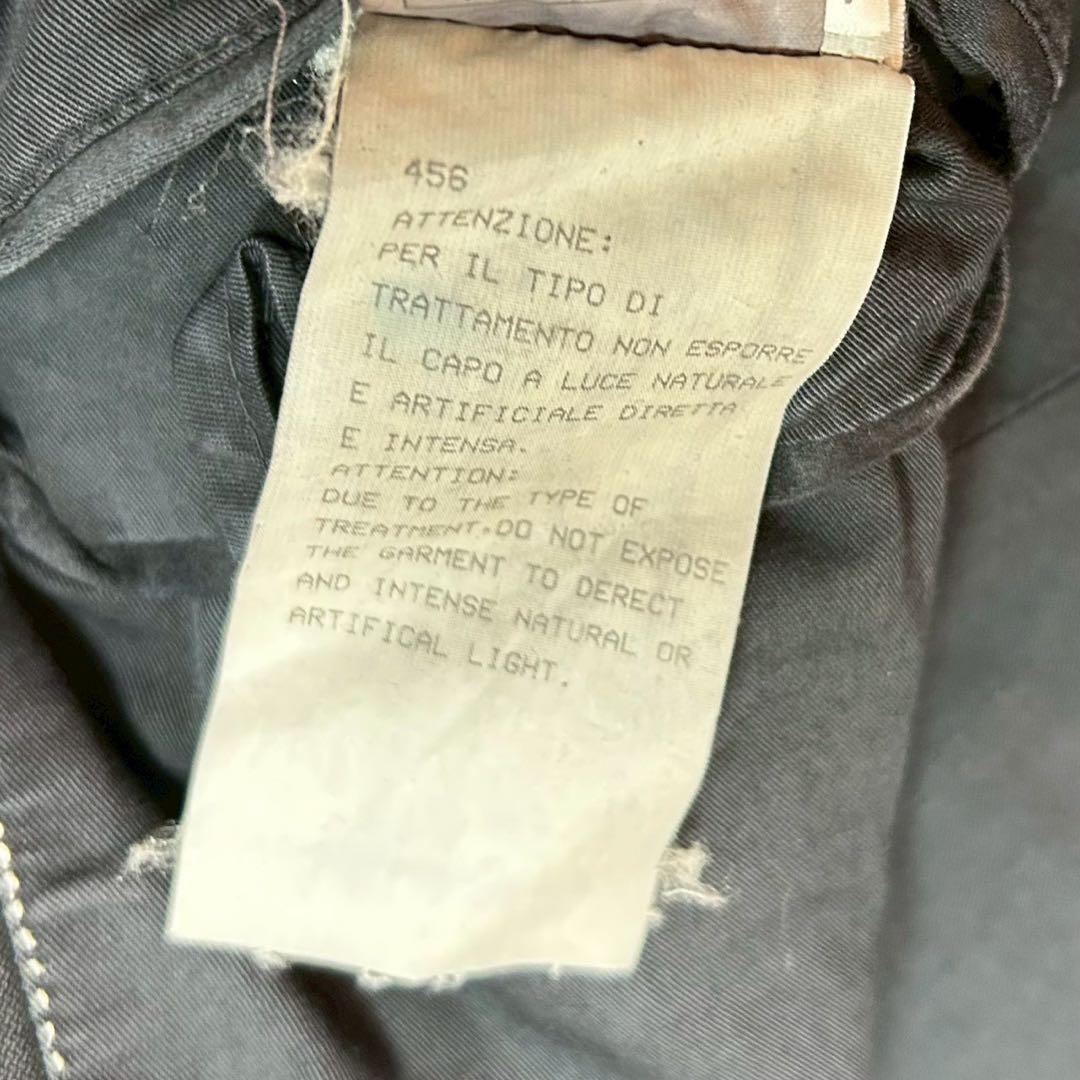 456
ATTENZIONE:
PER IL TIPO DI
TRATTAMENTO NON ESPORRE
IL CAPO A LUCE NATURALE
E ARTIFICIALE DIRETTA
E INTENSA.
ATTENTION:
DUE TO THE TYPE OF
TREATMENT.DO NOT EXPOSE
THE GARMENT TO DERECT
AND INTENSE NATURAL OR
ARTIFICAL LIGHT.